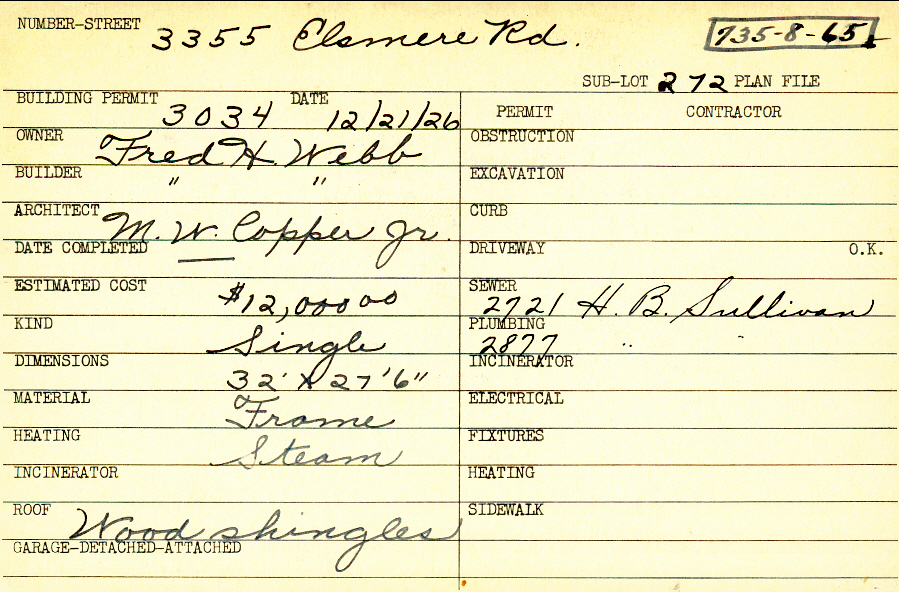 NUMBER-STREET 3355 Elsmere Rd. 735-8-65
SUB-LOT 272 PLAN FILE
BUILDING PERMIT 3034 DATE 12/21/26
PERMIT CONTRACTOR
OWNER Fred H Webb
OBSTRUCTION
BUILDER " "
EXCAVATION
ARCHITECT M. W. Copper Jr.
CURB
DATE COMPLETED —
DRIVEWAY O.K.
ESTIMATED COST $12,000 00
SEWER 2721 H. B. Sullivan
KIND Single
PLUMBING 2877 " "
DIMENSIONS 32' X 27'6"
INCINERATOR
MATERIAL Frame
ELECTRICAL
HEATING Steam
FIXTURES
INCINERATOR
HEATING
ROOF Wood shingles
SIDEWALK
GARAGE-DETACHED-ATTACHED